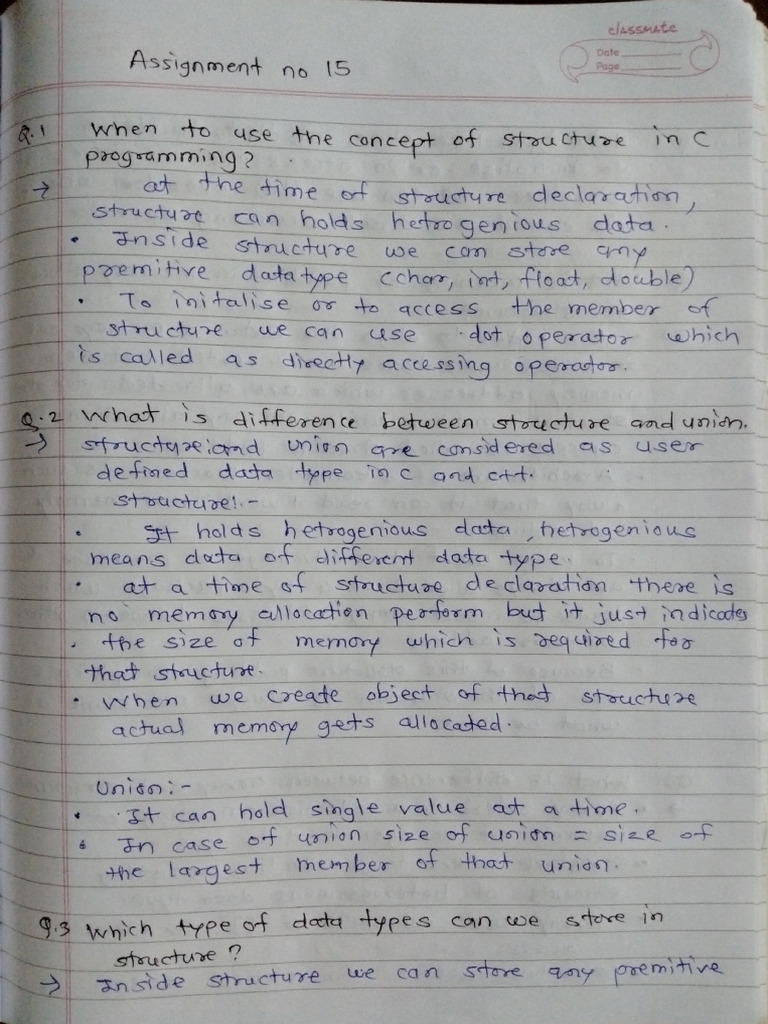 classmate
Date
Page
Assignment no 15
Q.1 When to use the concept of structure in C
programming?
→ at the time of structure declaration,
structure can holds hetrogenious data.
• Inside structure we can store any
premitive datatype (char, int, float, double)
• To initalise or to access the member of
structure we can use dot operator which
is called as directly accessing operator.
Q.2 What is difference between structure and union.
→ structure and union are considered as user
defined data type in c and c++.
structure:-
• It holds hetrogenious data, hetrogenious
means data of different data type.
• at a time of structure declaration there is
no memory allocation perform but it just indicates
• the size of memory which is required for
that structure.
• When we create object of that structure
actual memory gets allocated.
Union:-
• It can hold single value at a time.
• In case of union size of union = size of
the largest member of that union.
Q.3 Which type of data types can we store in
structure?
→ Inside structure we can store any premitive